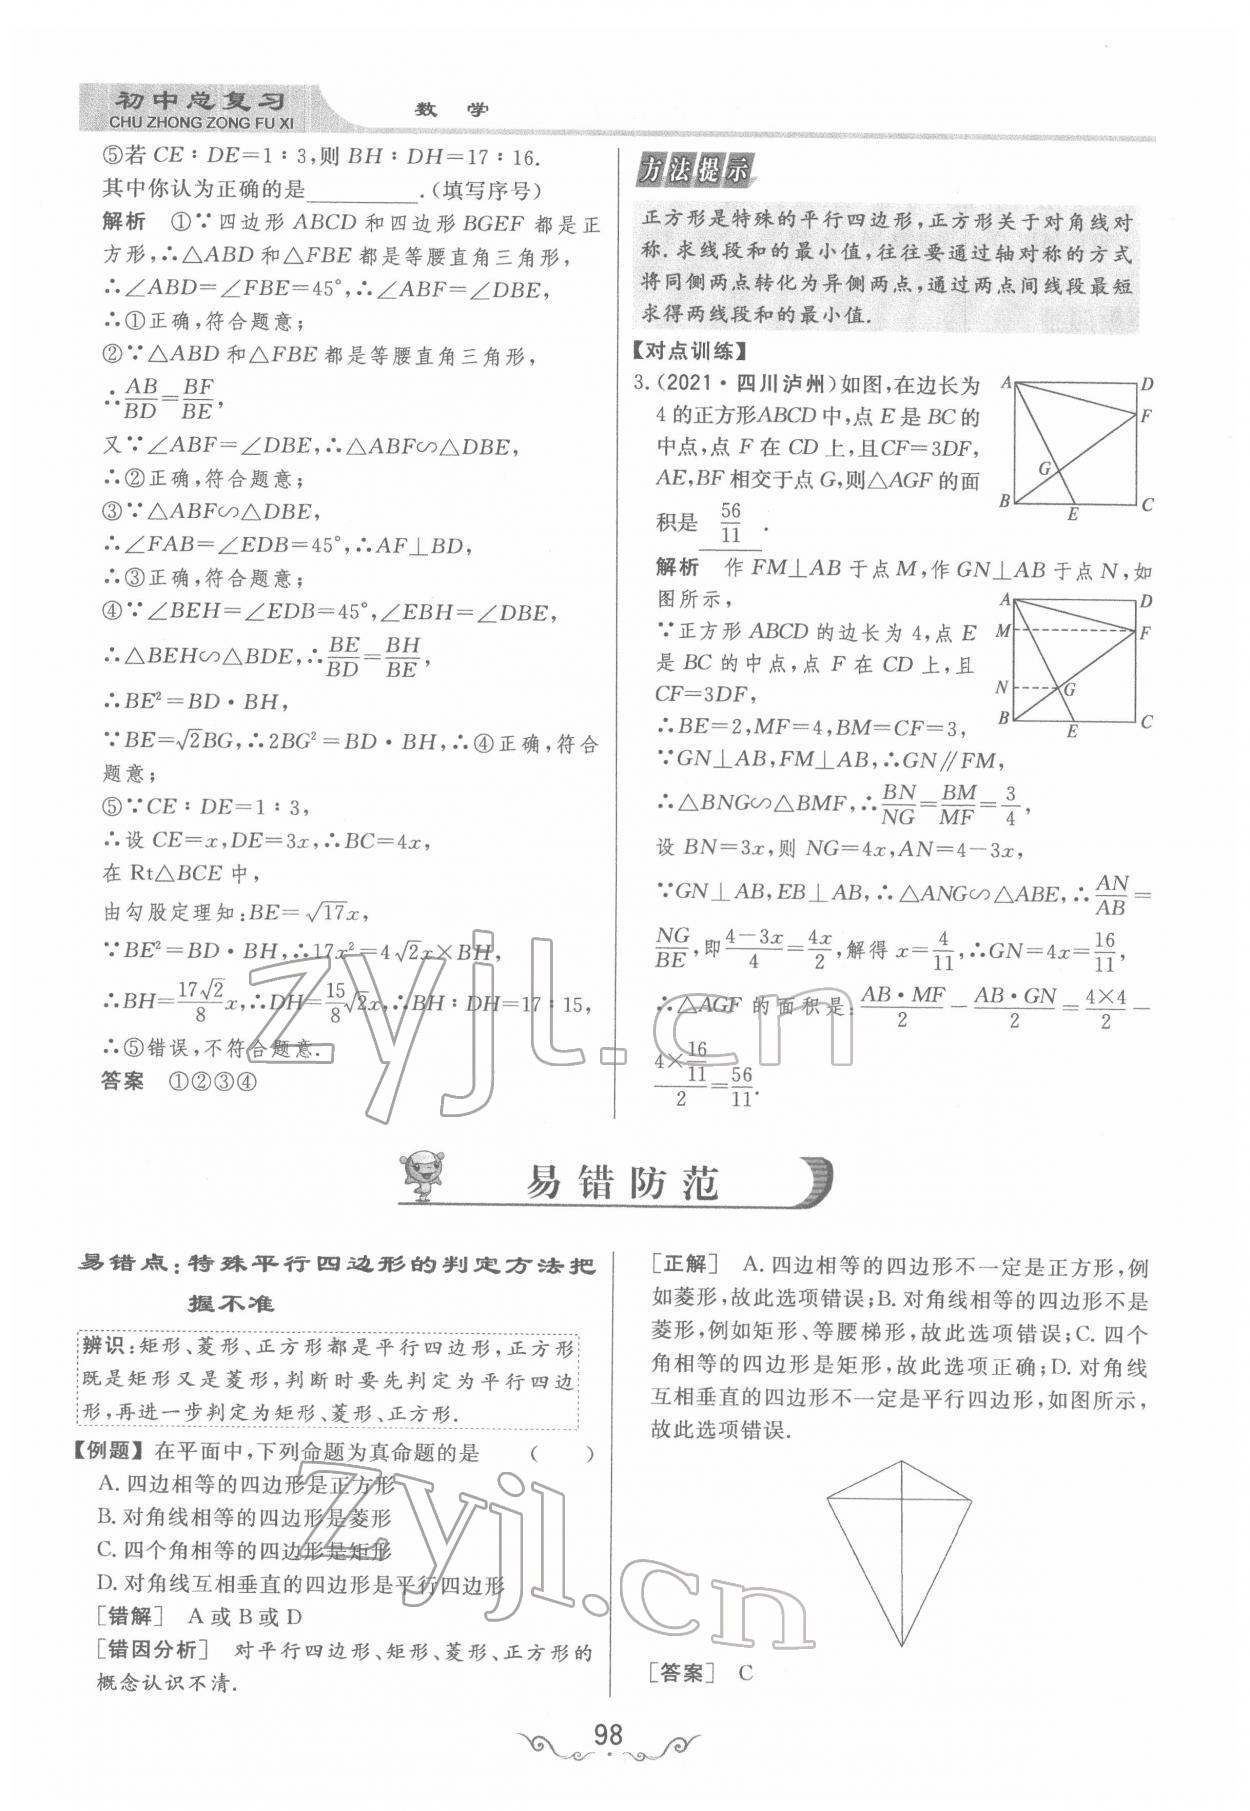 初中总复习
CHU ZHONG ZONG FU XI
数 学
⑤若 CE∶DE=1∶3,则 BH∶DH=17∶16.
其中你认为正确的是__________.(填写序号)
解析 ①∵四边形 ABCD 和四边形 BGEF 都是正
方形,∴△ABD 和△FBE 都是等腰直角三角形,
∴∠ABD=∠FBE=45°,∴∠ABF=∠DBE,
∴①正确,符合题意;
②∵△ABD 和△FBE 都是等腰直角三角形,
∴AB/BD=BF/BE,
又∵∠ABF=∠DBE,∴△ABF∽△DBE,
∴②正确,符合题意;
③∵△ABF∽△DBE,
∴∠FAB=∠EDB=45°,∴AF⊥BD,
∴③正确,符合题意;
④∵∠BEH=∠EDB=45°,∠EBH=∠DBE,
∴△BEH∽△BDE,∴BE/BD=BH/BE,
∴BE²=BD·BH,
∵BE=√2BG,∴2BG²=BD·BH,∴④正确,符合
题意;
⑤∵CE∶DE=1∶3,
∴设 CE=x,DE=3x,∴BC=4x,
在 Rt△BCE 中,
由勾股定理知:BE=√17x,
∵BE²=BD·BH,∴17x²=4√2x×BH,
∴BH=17√2/8x,∴DH=15/8√2x,∴BH∶DH=17∶15,
∴⑤错误,不符合题意.
答案 ①②③④
方法提示
正方形是特殊的平行四边形,正方形关于对角线对
称.求线段和的最小值,往往要通过轴对称的方式
将同侧两点转化为异侧两点,通过两点间线段最短
求得两线段和的最小值.
【对点训练】
3.(2021·四川泸州)如图,在边长为
4 的正方形ABCD 中,点 E 是 BC 的
中点,点 F 在 CD 上,且CF=3DF,
AE,BF 相交于点 G,则△AGF 的面
积是 56/11 .
A D
F
G
B E C
解析 作 FM⊥AB 于点 M,作 GN⊥AB 于点 N,如
图所示,
∵正方形 ABCD 的边长为 4,点 E
是 BC 的中点,点 F 在 CD 上,且
CF=3DF,
A D
M F
N G
B E C
∴BE=2,MF=4,BM=CF=3,
∵GN⊥AB,FM⊥AB,∴GN∥FM,
∴△BNG∽△BMF,∴BN/NG=BM/MF=3/4,
设 BN=3x,则 NG=4x,AN=4-3x,
∵GN⊥AB,EB⊥AB,∴△ANG∽△ABE,∴AN/AB=
NG/BE,即(4-3x)/4=4x/2,解得 x=4/11,∴GN=4x=16/11,
∴△AGF 的面积是:AB·MF/2-AB·GN/2=4×4/2-
(4×16/11)/2=56/11.
易错防范
易错点:特殊平行四边形的判定方法把
握不准
辨识:矩形、菱形、正方形都是平行四边形,正方形
既是矩形又是菱形,判断时要先判定为平行四边
形,再进一步判定为矩形、菱形、正方形.
【例题】在平面中,下列命题为真命题的是 ( )
A. 四边相等的四边形是正方形
B. 对角线相等的四边形是菱形
C. 四个角相等的四边形是矩形
D. 对角线互相垂直的四边形是平行四边形
[错解] A 或 B 或 D
[错因分析] 对平行四边形、矩形、菱形、正方形的
概念认识不清.
[正解] A. 四边相等的四边形不一定是正方形,例
如菱形,故此选项错误;B. 对角线相等的四边形不是
菱形,例如矩形、等腰梯形,故此选项错误;C. 四个
角相等的四边形是矩形,故此选项正确;D. 对角线
互相垂直的四边形不一定是平行四边形,如图所示,
故此选项错误.
[答案] C
98
zyjl.cn
zyjl.cn